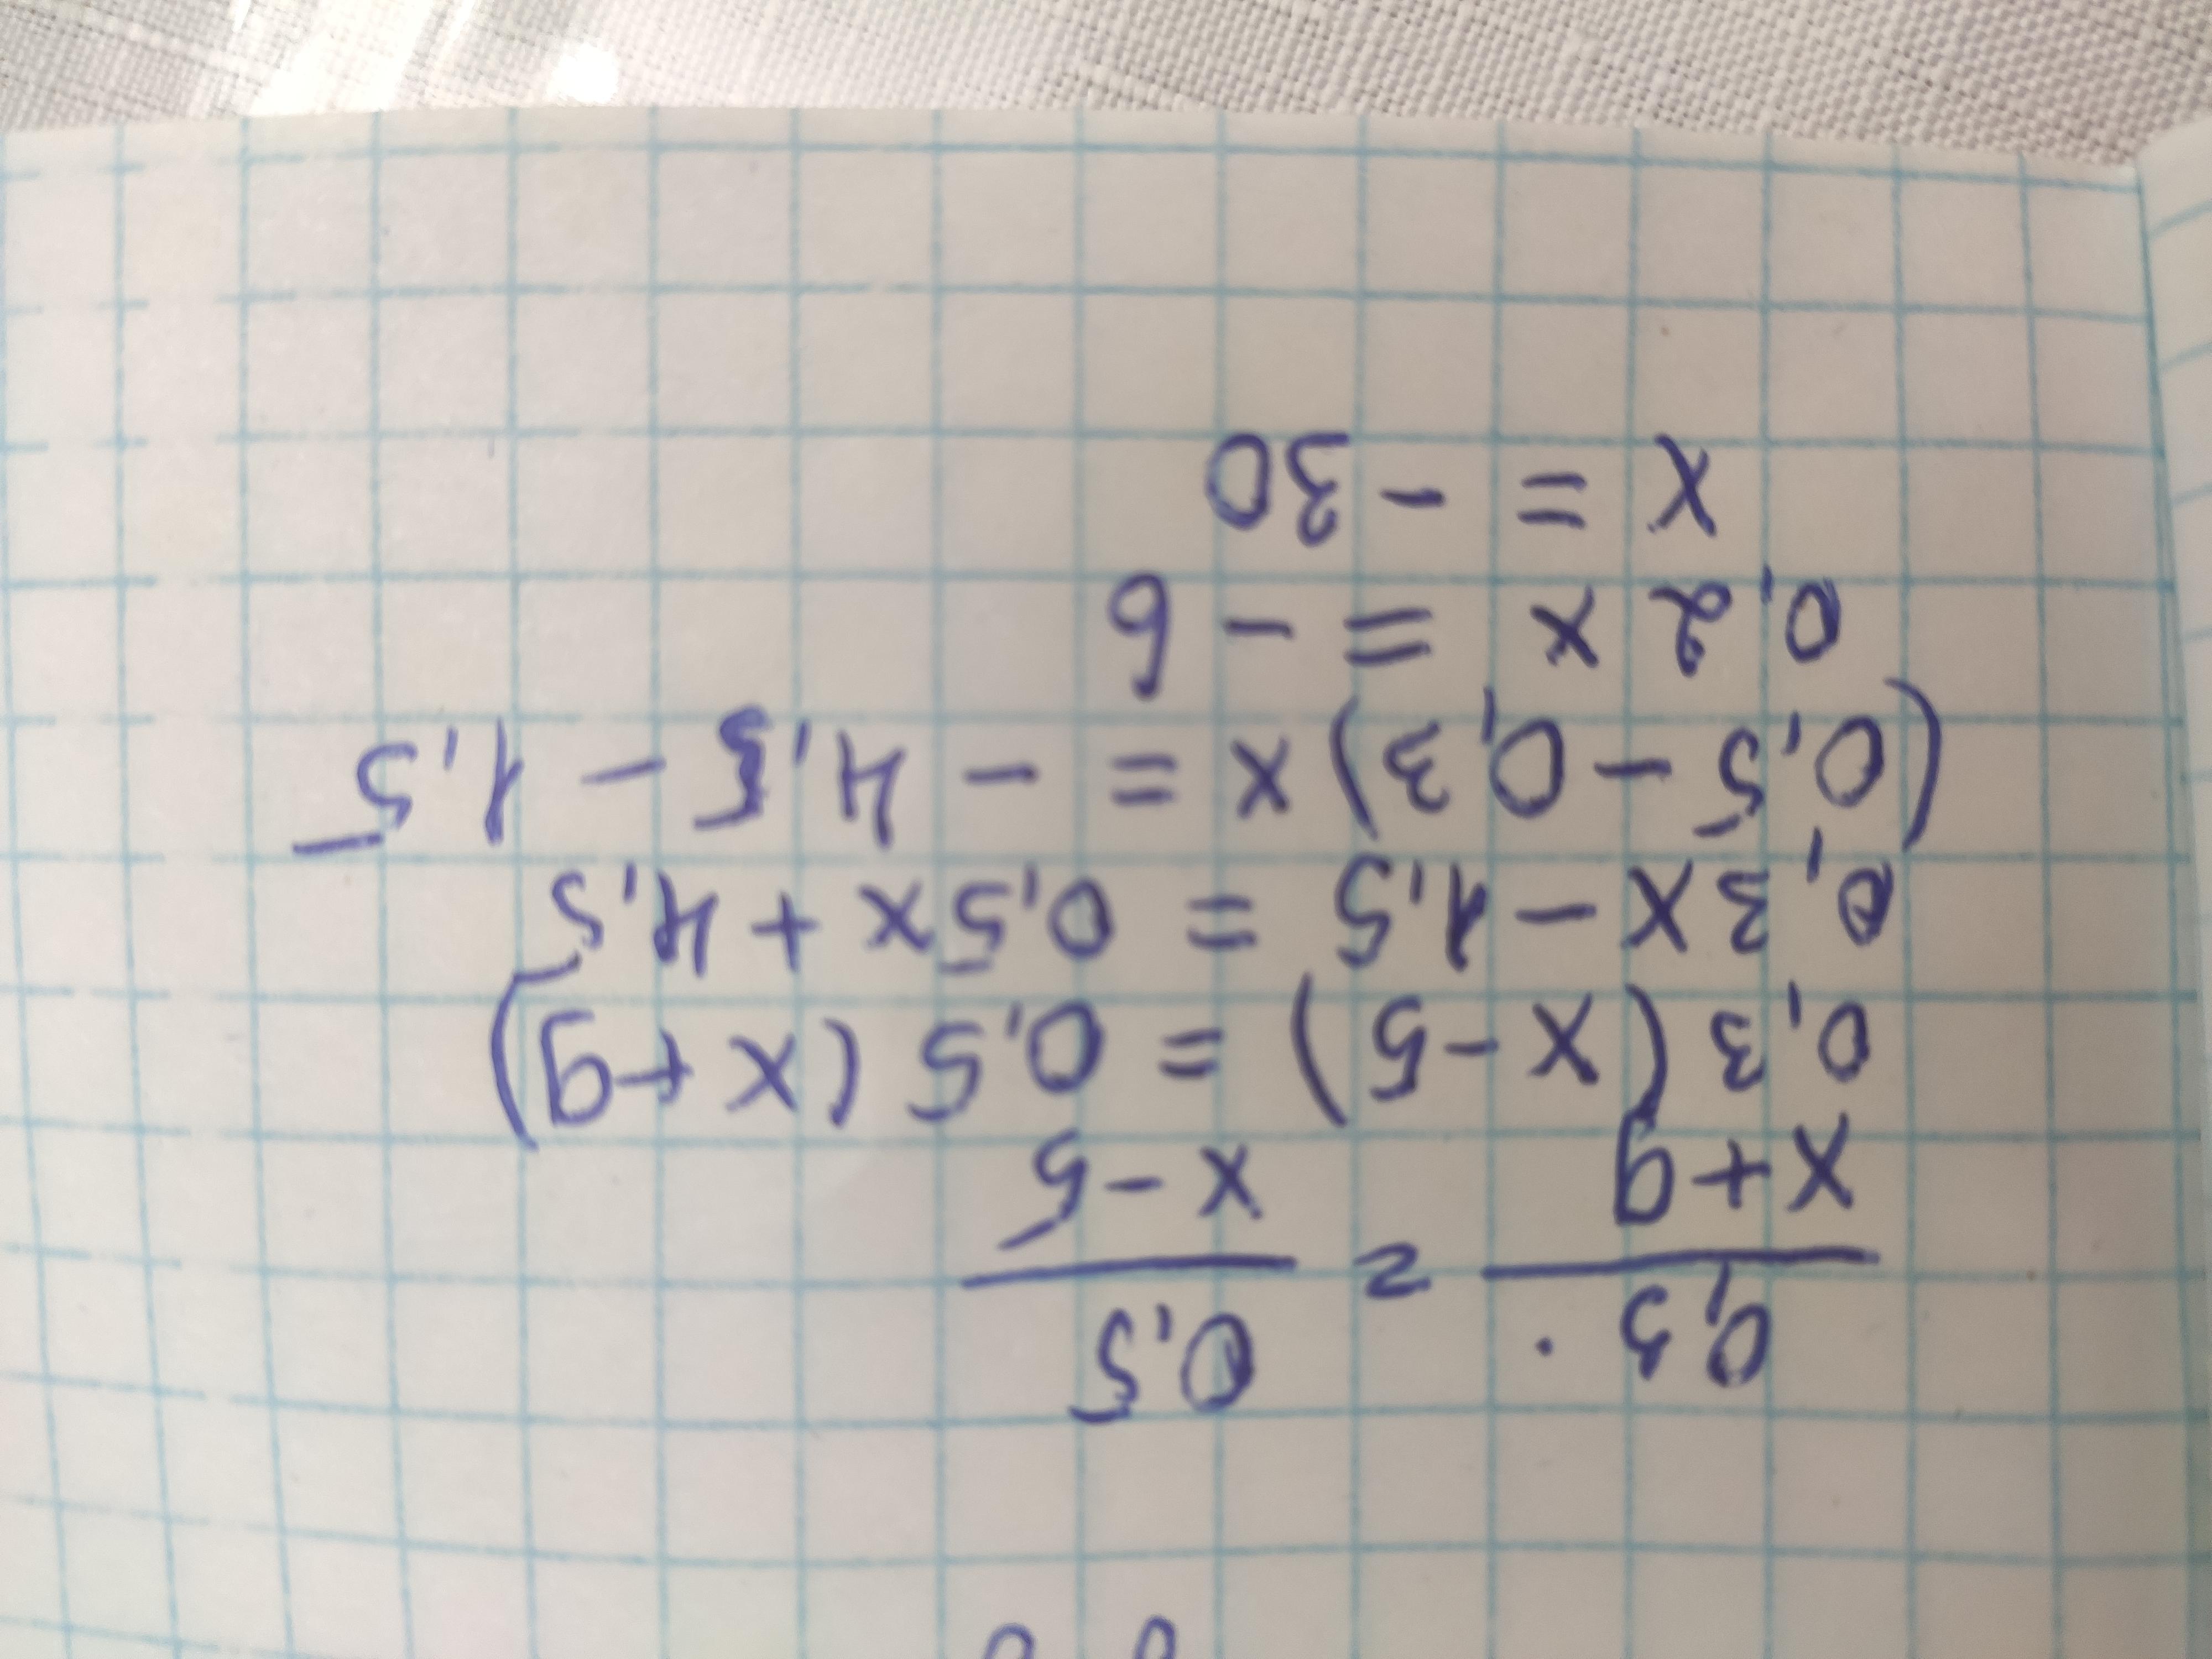 0,3/(x+9) = 0,5/(x-5)
0,3(x-5) = 0,5(x+9)
0,3x-1,5 = 0,5x+4,5
(0,5-0,3)x = -4,5-1,5
0,2x = -6
x = -30